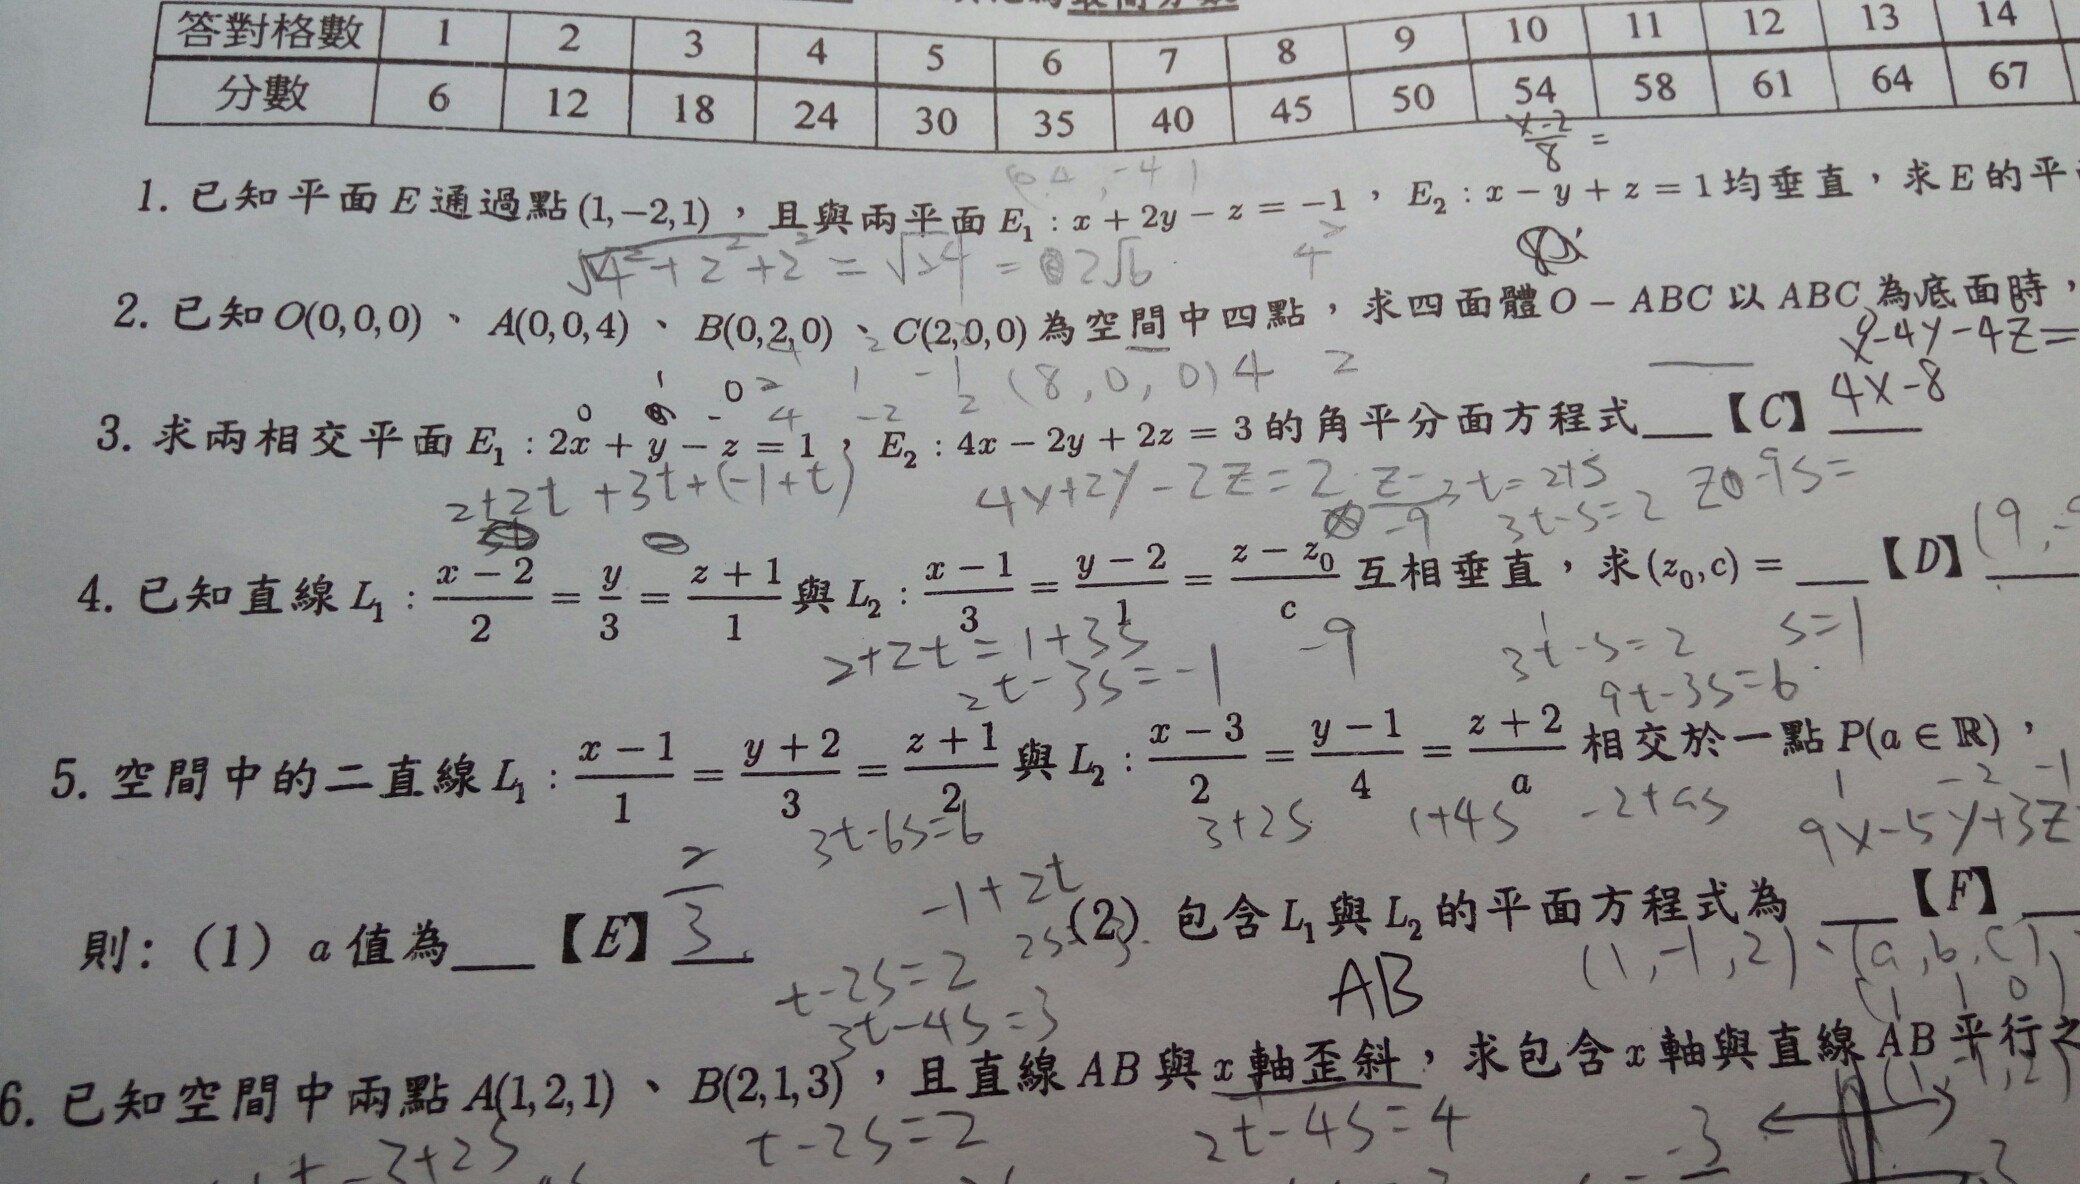 答對格數 1 2 3 4 5 6 7 8 9 10 11 12 13 14
分數 6 12 18 24 30 35 40 45 50 54 58 61 64 67
x-2/8 =
1. 已知平面E通過點(1,−2,1)，且與兩平面E₁：x+2y−z=−1，E₂：x−y+z=1均垂直，求E的平
√4²+2²+2² = √24 = 2√6
2. 已知O(0,0,0)、A(0,0,4)、B(0,2,0)、C(2,0,0)為空間中四點，求四面體O−ABC以ABC為底面時，
(8,0,0) 4 2
4x-8
3. 求兩相交平面E₁：2x+y−z=1，E₂：4x−2y+2z=3的角平分面方程式___【C】
2+2t+3t+(-1+t) 4x+2y-2z=2
3t-s=2
4. 已知直線L₁：(x−2)/2=y/3=(z+1)/1與L₂：(x−1)/3=(y−2)/1=(z−z₀)/c互相垂直，求(z₀,c)=___【D】
2+2t=1+3s -9 3t-s=2 s=1
2t-3s=-1 9t-3s=6
5. 空間中的二直線L₁：(x−1)/1=(y+2)/3=(z+1)/2與L₂：(x−3)/2=(y−1)/4=(z+2)/a相交於一點P(a∈ℝ)，
3t-6s=6 3+2s 1+4s -2+as 1 -2 -1
9x-5y+3z
-1+2t
則：(1) a值為___【E】2/3 (2) 包含L₁與L₂的平面方程式為___【F】
t-2s=2 AB (1,-1,2)·(a,b,c)
3t-4s=3 (1 1 0)
6. 已知空間中兩點A(1,2,1)、B(2,1,3)，且直線AB與x軸歪斜，求包含x軸與直線AB平行之
(1,-1,2)
t-2s=2 2t-4s=4 -3